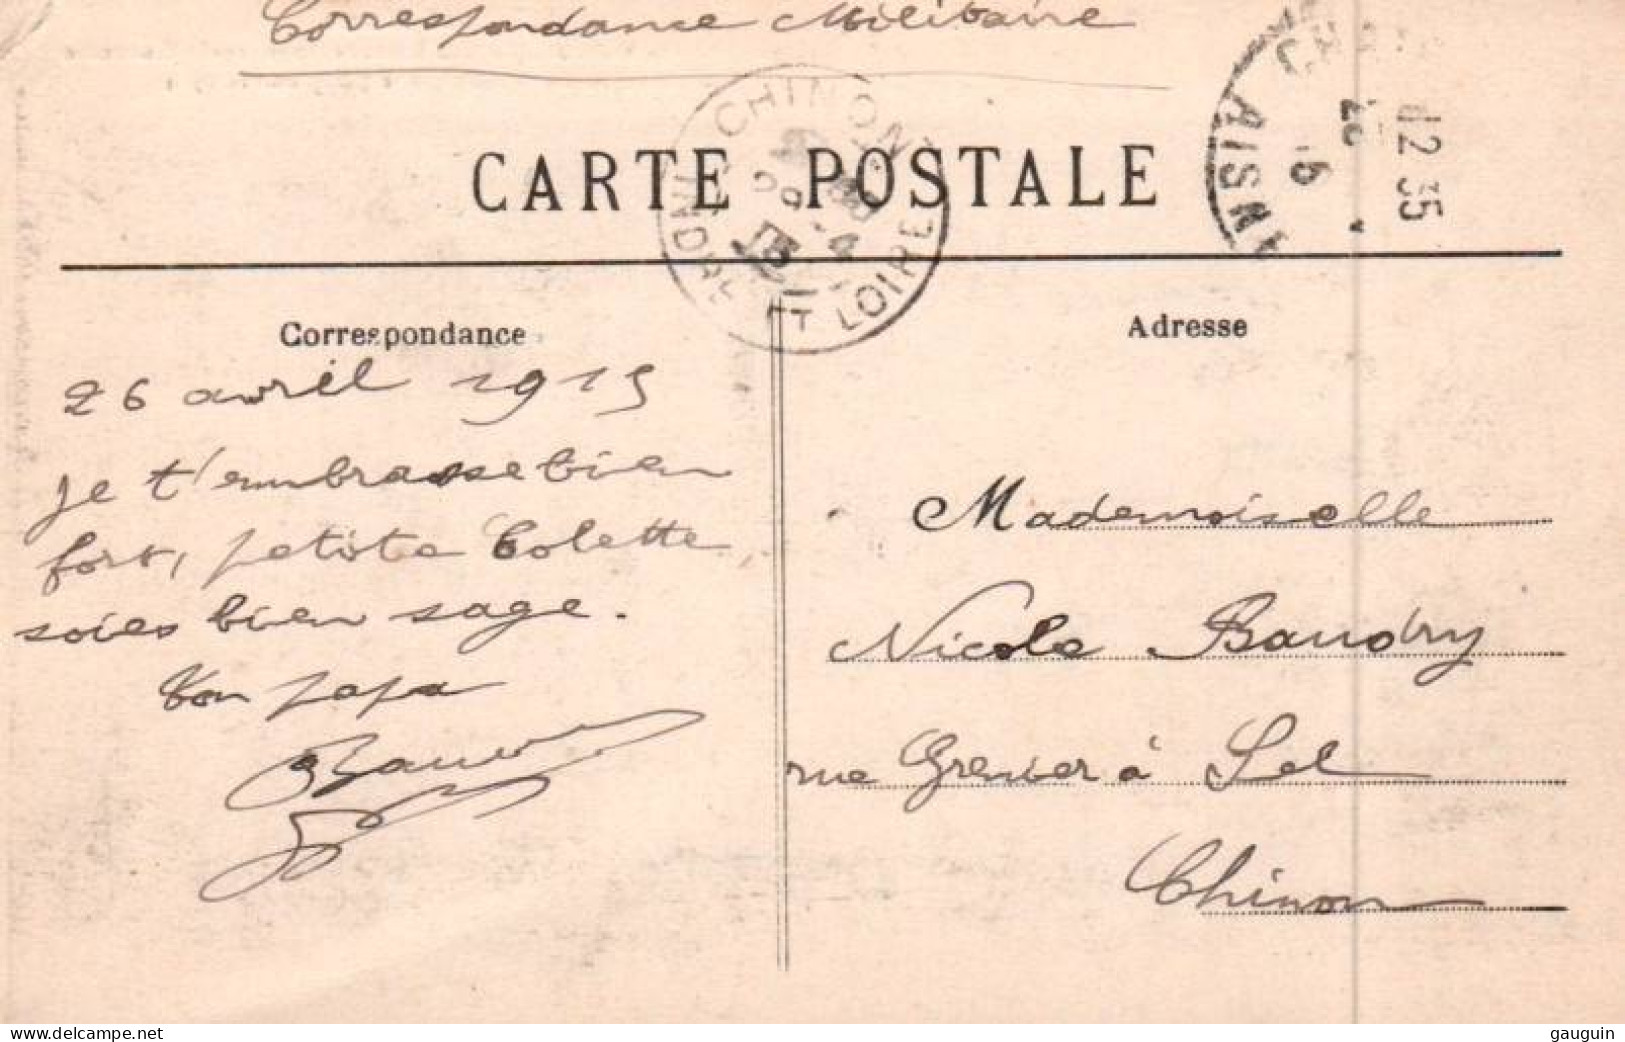 Correspondance Militaire
CARTE POSTALE
CHINON
INDRE ET LOIRE
15
AISNE
12 35
Correspondance
26 avril 1915
Je t'embrasse bien
fort, petite Colette,
soies bien sage.
Ton papa
Adresse
Mademoiselle
Nicole Baudry
rue Grenier à Sel
Chinon
www.delcampe.net
gauguin